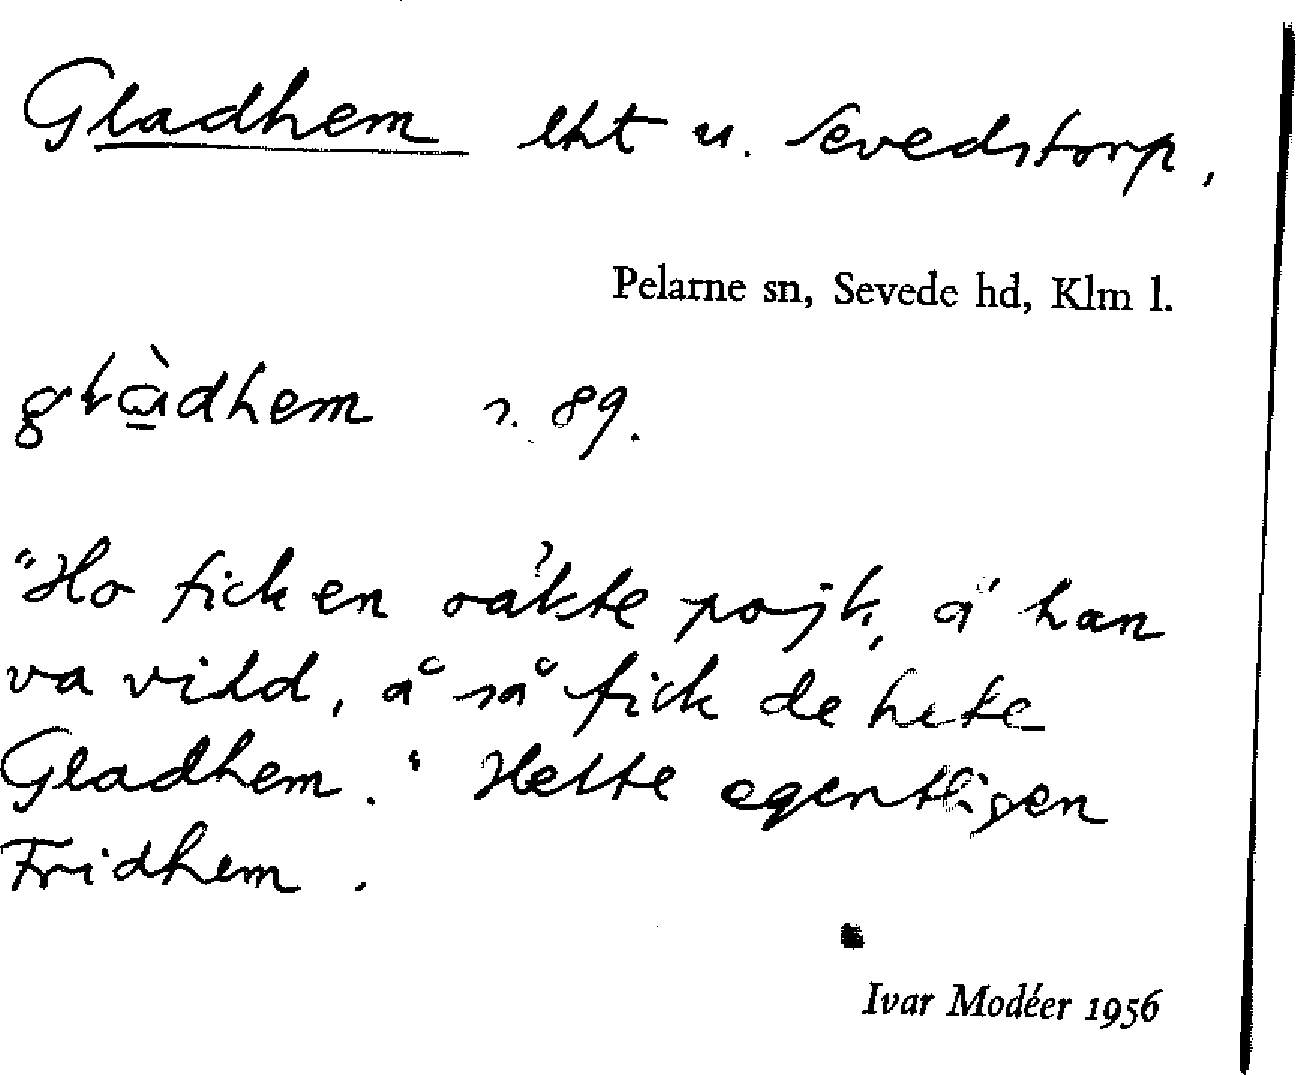 Gladhem lht u. Sevedstorp,
Pelarne sn, Sevede hd, Klm l.
glàdhem s. 89.
"Ho fick en oäkte pojk, å han
va vild, å så fick de heta
Gladhem." Hette egentligen
Fridhem.
Ivar Modéer 1956